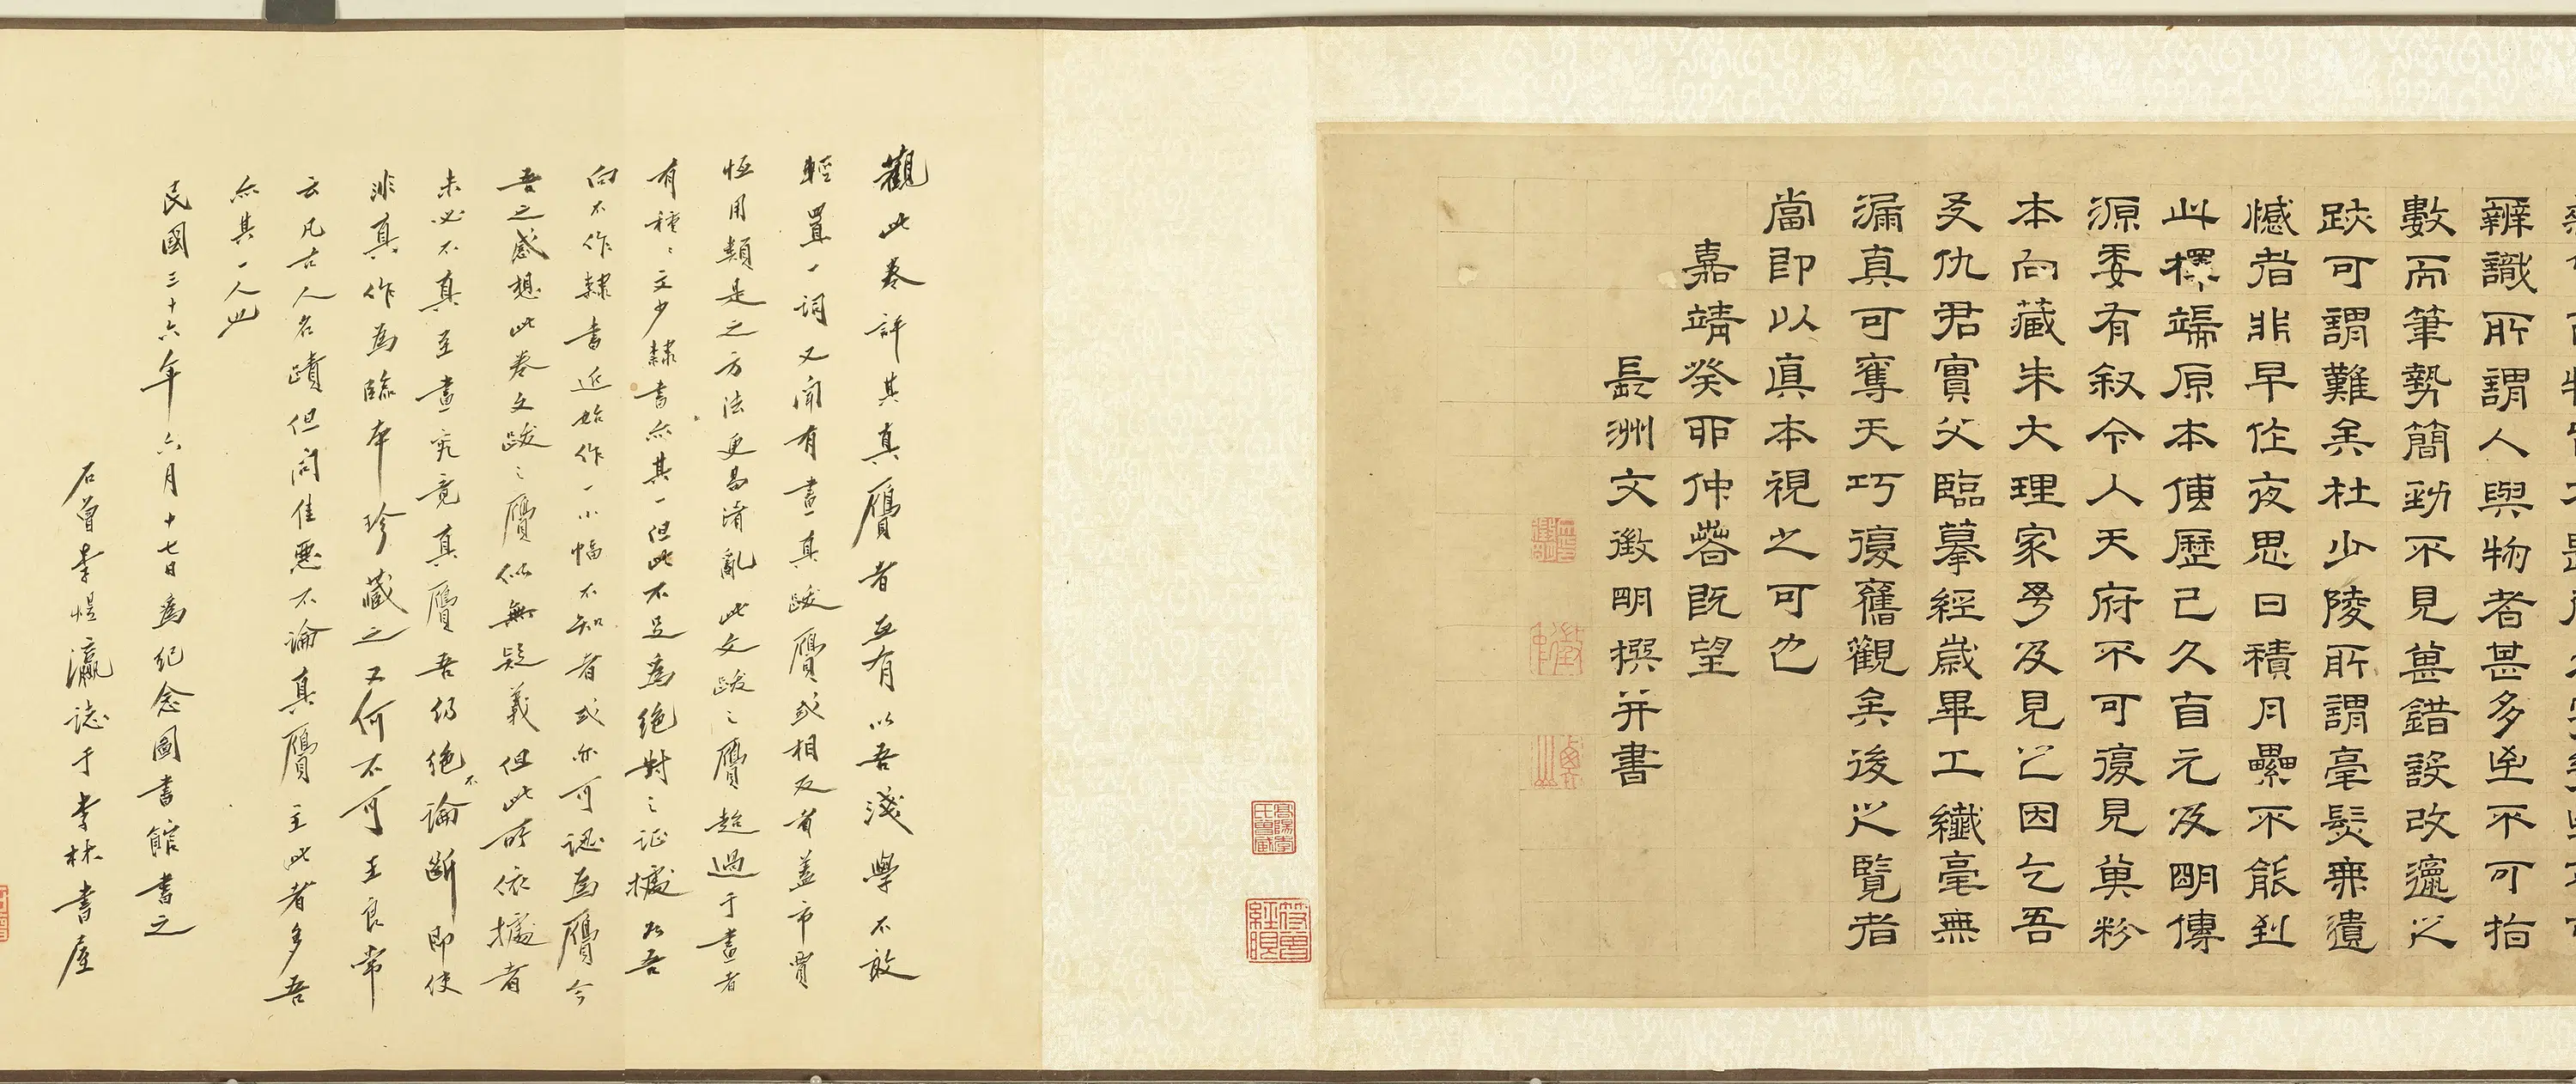 辨識所謂人與物者甚多至不可指
數而筆勢簡勁不見萬錯設改邅之
跌可謂難矣杜少陵所謂毫髮無遺
憾者非早作夜思日積月纍不能到
此擇端原本傳歷已久首元及明傳
源委有叙今入天府不可復見萬粉
本向藏朱大理家予及見之因乞吾
友仇君實父臨摹經歲畢工纖毫無
漏真可奪天巧復舊觀矣後之覽者
當即以真本視之可也
嘉靖癸卯仲春既望
長洲文徵明撰并書
觀此卷評其真贗者互有以吾淺學不敢
輕置一詞又聞有畫真跋贗或相反者蓋市賈
恆用類是之方法更易淆亂此文跋之贗超過于畫者
有種〻文少隸書亦其一但此不足為絕對之証據如吾
向不作隸書近始作一小幅不知者或亦可認為贗今
吾之感想此卷文跋之贗似無疑義但此所依據者
未必不真至畫究竟真贗吾仍絕不論斷即使
非真作為臨本珍藏之又何不可王良常
云凡古人名蹟但問佳惡不論真贗主此者多吾
亦其一人也
民國三十六年六月十七日為紀念圖書館書之
石曾李煜瀛誌于李林書屋
高陽李氏曾藏